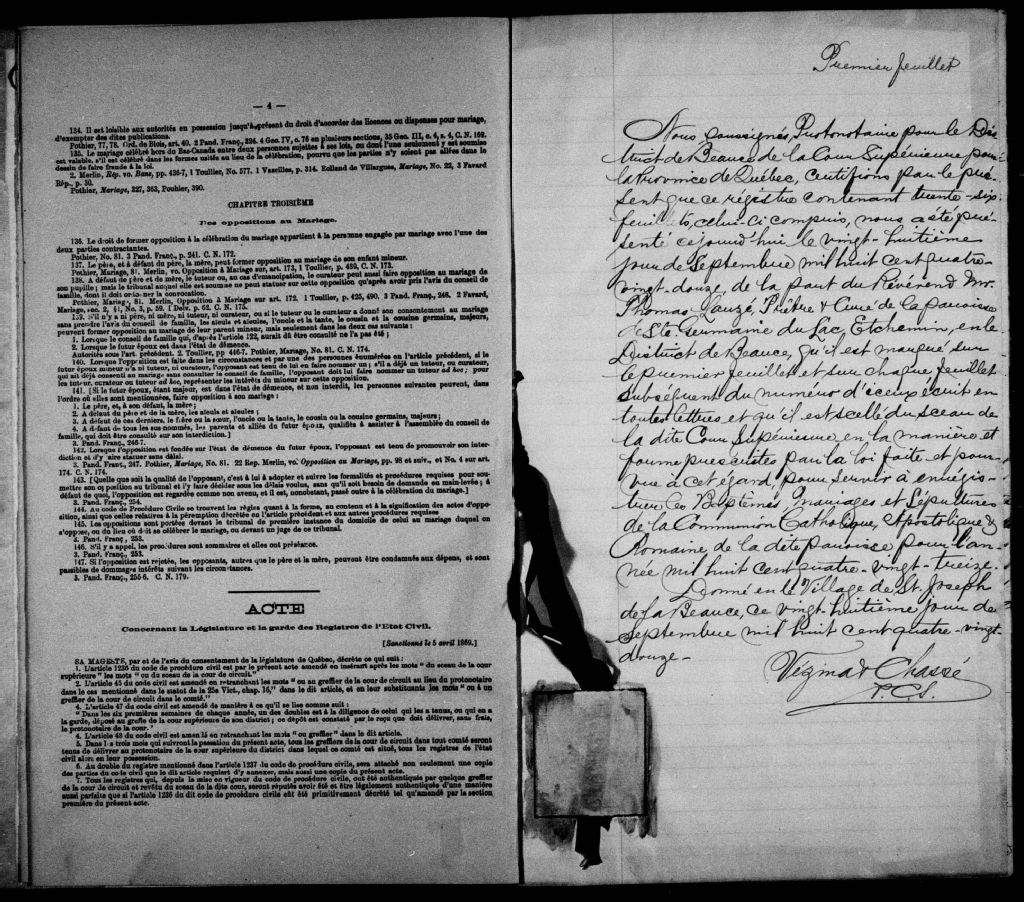 — 4 —
134. Il est loisible aux autorités en possession jusqu'à présent du droit d'accorder des licences ou dispenses pour mariage,
d'exempter des dites publications.
Pothier, 77, 78. Ord. de Blois, art. 40. 2 Pand. Franç., 324. 4 Geo. IV, c. 76 en plusieurs sections, 35 Geo. III, c. 4, s. 4, C. N. 169.
135. Le mariage célébré hors du Bas-Canada entre deux personnes sujettes à ses lois, ou dont l'une seulement y est soumise
est valable, s'il est célébré dans les formes usités au lieu de la célébration, pourvu que les parties n'y soient pas allées dans le
dessein de faire fraude à la loi.
2. Merlin, Rep. vo. Bans, pp. 436-7, 1 Toullier, No. 577. 1 Vazeilles, p. 314. Rolland de Villargues, Mariage, No. 22, 3 Favard
Rép., p. 30.
Pothier, Mariage, 227, 363, Pouhier, 390.
CHAPITRE TROISIÈME
Des oppositions au Mariage.
136. Le droit de former opposition à la célébration du mariage appartient à la personne engagée par mariage avec l'une des
deux parties contractantes.
Pothier, No. 81. 3 Pand. Franç., p. 241. C. N. 172.
137. Le père, et à défaut du père, la mère, peut former opposition au mariage de son enfant mineur.
Pothier, Mariage, 81. Merlin, vo. Opposition à Mariage sur, art. 173, 1 Toullier, p. 489, C. N. 173.
138. A défaut de père et de mère, le tuteur ou, au cas d'émancipation, le curateur peut aussi faire opposition au mariage de
son pupille ; mais le tribunal auquel elle est soumise ne peut statuer sur cette opposition qu'après avoir pris l'avis du conseil de
famille, dont il doit ordonner la convocation.
Pothier, Mariag, 81. Merlin, Opposition à Mariage sur art. 172. 1 Toullier, p. 425, 490, 3 Pand. Franç., 248. 2 Favard,
Mariage, sec. 2, §1, No. 3, p. 59. 1 Delv. p. 62. C. N. 175.
139. S'il n'y a ni père, ni mère, ni tuteur, ni curateur, ou si le tuteur ou le curateur a donné son consentement au mariage
sans prendre l'avis du conseil de famille, les aïeuls et aïeules, l'oncle et la tante, le cousin et la cousine germains, majeurs,
peuvent former opposition au mariage de leur parent mineur, mais seulement dans les deux cas suivants :
1. Lorsque le conseil de famille qui, d'après l'article 122, aurait dû être consulté ne l'a pas été ;
2. Lorsque le futur époux est dans l'état de démence.
Autorités sous l'art. précédent. 2. Toullier, pp 446-7. Pothier, Mariage, No. 81. C. N. 174.
140. Lorsque l'opposition est faite dans les circonstances et par une des personnes énumérées en l'article précédent, si le
futur époux mineur n'a ni tuteur, ni curateur, l'opposant est tenu de lui en faire nommer un ; s'il a déjà un tuteur, ou curateur,
qui ait déjà consenti au mariage sans consulter le conseil de famille, l'opposant doit lui faire nommer un tuteur ad hoc ; pour
les tuteur, curateur ou tuteur ad hoc, représenter les intérêts du mineur sur cette opposition.
141. [Si le futur époux, étant majeur, est dans l'état de démence, et non interdit, les personnes suivantes peuvent, dans
l'ordre où elles sont mentionnées, faire opposition à son mariage :
1. Le père, et, à son défaut, la mère ;
2. A défaut du père et de la mère, les aïeuls et aïeules ;
3. A défaut de ces derniers, le frère ou la sœur, l'oncle ou la tante, le cousin ou la cousine germains, majeurs ;
4. A défaut de tous les sus nommés, les parents et alliés du futur époux, qualifiés à assister à l'assemblée du conseil de
famille, qui doit être consulté sur son interdiction.]
3. Pand. Franç., 246-7.
142. Lorsque l'opposition est fondée sur l'état de démence du futur époux, l'opposant est tenu de promouvoir son inter-
diction et d'y aire statuer sans délai.
3. Pand. Franç., 247. Pothier, Mariage, No. 81. 22 Rep. Merlin, vo. Opposition au Mariage, pp. 98 et suiv., et No. 4 sur art.
174. C. N. 174.
143. [Quelle que soit la qualité de l'opposant, c'est à lui à adopter et suivre les formalités et procédures requises pour sou-
mettre son opposition au tribunal et l'y faire décider sous les délais voulus, sans qu'il soit besoin de demande en main-levée ; à
défaut de quoi, l'opposition est regardée comme non avenu, et il est, nonobstant, passé outre à la célébration du mariage.]
3. Pand. Franç., 254.
144. Au code de Procédure Civile se trouvent les règles quant à la forme, au contenu et à la signification des actes d'oppo-
sition, ainsi que celles relatives à la péremption décrétée en l'article précédent et aux autres procédures requises
145. Les oppositions sont portées devant le tribunal de première instance du domicile de celui au mariage duquel on
s'oppose, ou du lieu où doit se célébrer le mariage, ou devant un juge de ce tribunal.
3. Pand. Franç., 253.
146. S'il y a appel, les procédures sont sommaires et elles ont préséance.
3. Pand. Franç., 253.
147. Si l'opposition est rejetée, les opposants, autres que le père et la mère, peuvent être condamnés aux dépens, et sont
passibles de dommages intérêts suivant les circonstances.
3. Pand. Franç., 255 6. C. N. 179.
ACTE
Concernant la Législature et la garde des Registres de l'Etat Civil.
[Sanctionné le 5 avril 1869.]
SA MAGESTÉ, par et de l'avis du consentement de la législature de Québec, décrète ce qui suit :
1. L'article 1236 du code de procédure civil est par le présent acte amendé en insérant après les mots " du sceau de la cour
supérieure " les mots " ou du sceau de la cour de circuit."
2. L'article 45 du code civil est amendé en retranchant les mots " ou au greffier de la cour de circuit au lieu du protonotaire
dans le cas mentionné dans le statut de la 25e Vict., chap. 16," dans le dit article, et en leur substituants les mots " ou à un
greffier de la cour de circuit dans le comté."
4. L'article 47 du code civil est amendé de manière à ce qu'il se lise comme suit :
" Dans les six premières semaines de chaque année, un des doubles est à la diligence de celui qui les a tenus, ou qui en a
la garde, déposé au greffe de la cour supérieure de son district ; ce dépôt est constaté par le reçu que doit délivrer, sans frais,
le protonotaire de la cour."
4. L'article 48 du code civil est amendé en retranchant les mots " ou greffier " dans le dit article.
5. Dans les trois mois qui suivront la passation du présent acte, tous les greffiers de la cour de circuit dans tout comté seront
tenus de délivrer au protonotaire de la cour supérieure du district dans lequel ce comté est situé, tous les registres de l'état
civil alors en leur possession.
6. Au double du registre mentionné dans l'article 1237 du code de procédure civile, sera attaché non seulement une copie
des parties du code civil que le dit article requiert d'y annexer, mais aussi une copie du présent acte.
7. Tous les registres qui, depuis la mise en vigueur du code de procédure civile, ont été authentiqués par quelque greffier
de la cour de circuit et revêtu du sceau de la dite cour, seront réputés avoir été et être légalement authentiqués d'une manière
aussi parfaite que si l'article 1236 du dit code de procédure civile eût été primitivement décrété tel qu'amendé par la section
première du présent acte.
Premier feuillet
Nous, soussignés, Protonotaire pour le Dis
trict de Beauce de la Cour Supérieure, pour
la Province de Québec, certifions par le pré-
sent que ce régistre contenant trente-six
feuillets, celui-ci compris, nous a été pré-
senté ce jourd'hui le vingt-huitième
jour de Septembre mil huit cent quatre-
vingt-douze, de la part du Révérend Mr.
Thomas Lauzé, Prêtre & Curé de la paroisse
de Ste Germaine du Lac, Etchemin, en le
District de Beauce, qu'il est marqué sur
le premier feuillet et sur chaque feuillet
subséquent du numéro d'iceux écrit en
toutes lettres et qu'il est scellé du sceau de
la dite Cour Supérieure, en la manière et
forme prescrites par la loi faite et pour-
vue à cet égard, pour servir à enrégis-
trer les Baptêmes mariages et Sépultures
de la Communion Catholique, Apostolique &
Romaine, de la dite paroisse pour l'an-
née mil huit cent quatre-vingt-treize.
Donné en le Village de St. Joseph
de la Beauce, ce vingt-huitième jour de
Septembre mil huit cent quatre-vingt
douze-
Vézina & Chassé
P.C.S.